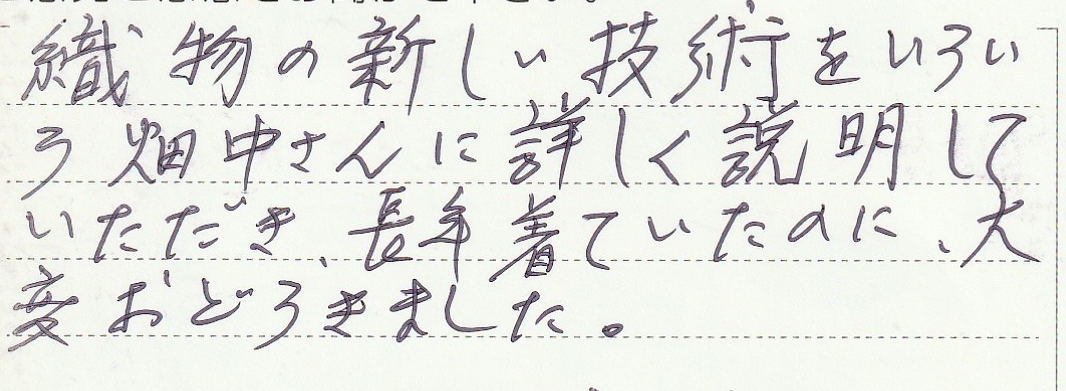 織物の新しい技術をいろい
ろ畑中さんに詳しく説明して
いただき、長年着ていたのに、大
変おどろきました。